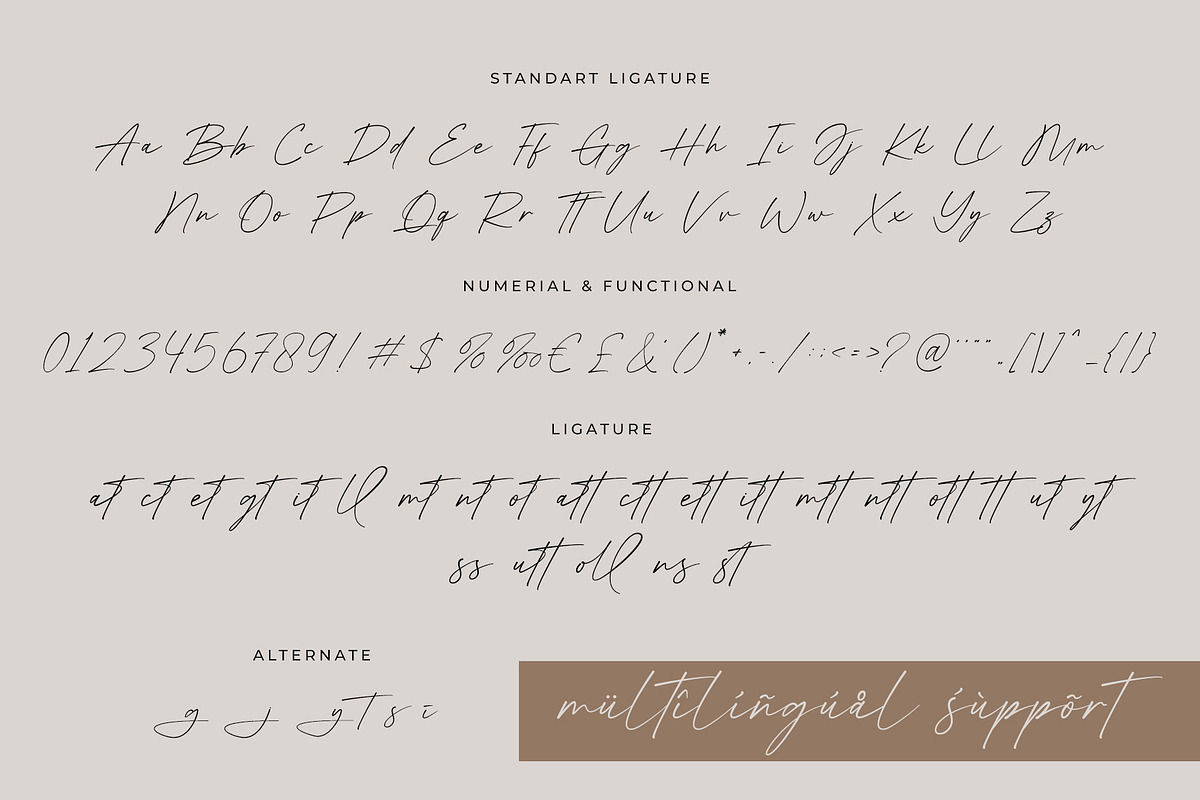 STANDART LIGATURE
Aa Bb Cc Dd Ee Ff Gg Hh Ii Jj Kk Ll Mm
Nn Oo Pp Qq Rr Tt Uu Vv Ww Xx Yy Zz
NUMERIAL & FUNCTIONAL
0123456789! # $ % ‰ € £ & ' ( ) * + , - . / : ; < = > ? @ [ \ ] ^ _ { | }
LIGATURE
at ct et gt it ll mt nt ot att ctt ett itt mtt ntt ott tt ut yt
ss utt oll ns st
ALTERNATE
g j y t s i
mültîlíñgúål śùppõrt